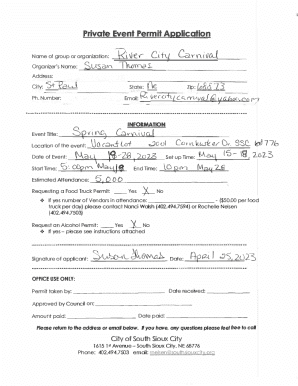 Private Event Permit Application
Name of group or organization: River City Carnival
Organizer's Name: Susan Thomas
Address:
City: St Paul State: Ne Zip: 68873
Ph. Number: Email: Rivercitycarnival@yahoo.com
INFORMATION
Event Title: Spring Carnival
Location of the event: Vacant Lot 2001 Cornhusker Dr. SSC 68776
Date of Event: May 18-28, 2023 Set up Time: May 15-18, 2023
Start Time: 5:00pm May 18 End Time: 10pm May 28
Estimated Attendance: 5,000
Requesting a Food Truck Permit: Yes X No
❖ If yes number of Vendors in attendance: - ($50.00 per food
truck per day) please contact Nanci Walsh (402.494.7594) or Rochelle Nelsen
(402.494.7503)
Request an Alcohol Permit: Yes X No
❖ If yes – please see instructions attached
Signature of applicant: Susan Thomas Date: April 25, 2023
OFFICE USE ONLY:
Permit taken by: Date received:
Approved by Council on:
Amount paid: Date paid:
Please return to the address or email below. If you have any questions please feel free to call
City of South Sioux City
1615 1st Avenue – South Sioux City, NE 68776
Phone: 402.494.7503 email: rnelsen@southsiouxcity.org